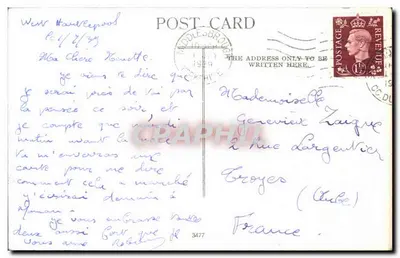 West Hartlepool
POST CARD
Le 1/2/39
Ma Chère Nanette
THE ADDRESS ONLY TO BE
WRITTEN HERE.
POSTAGE REVENUE
1½
Je viens te dire que
je serai près de toi par
la pensée ce soir et
je compte que
matin avant la
tu m'enverras une
carte pour me dire
comment cela a marché
j'écrirai demain à
Maman.
je vous embrasse toutes
deux aussi fort que je
vous aime
3477
Mademoiselle
Geneviève Zaigue
2 Rue Largentier
Troyes
(Aube)
France.